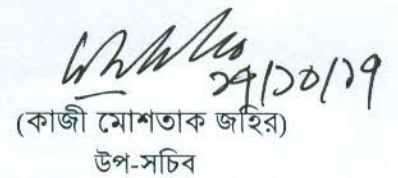 ২৭/১০/১৭
(কাজী মোশতাক জহির)
উপ-সচিব